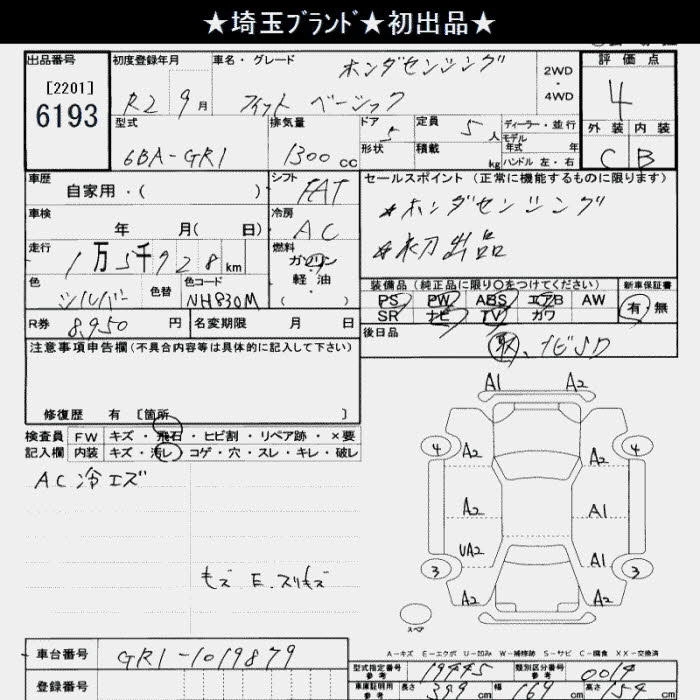 ★埼玉ﾌﾞﾗﾝﾄﾞ★初出品★
出品番号 初度登録年月 車名・グレード ホンダセンシング 2WD 評価点
[2201]
6193 R2 9月 フィット ベーシック 4WD 4
型式 排気量 ドア 5 定員 5人 ディーラー・並行 外装 内装
モデル年式 年
6BA-GR1 1300cc 形状 積載 kg ハンドル 左・右 C B
車歴 自家用・( ) シフト FAT セールスポイント(正常に機能するものに限ります)
車検 年 月( 日) 冷房 AC ★ホンダセンシング
走行 1万5千928km 燃料 ガソリン ★初出品
軽・油
( )
色 シルバー 色替 色コード NH830M 装備品(純正品に限り○をつけてください) 新車保証書
PS PW ABS エアB AW 有・無
R券 8,950円 名変期限 月 日 SR ナビ TV カワ
後日品
注意事項申告欄(不具合内容等は具体的に記入して下さい) 取、ナビSD
修復歴 有 〔箇所 〕
検査員 FW キズ・飛石・ヒビ割・リペア跡・×要
記入欄 内装 キズ・汚レ・コゲ・穴・スレ・キレ・破レ
A1 A2
4 A2 A2 4
AC 冷エズ
A2 A1
UA2 A1
3 A2 A2 3
キズ E.スリキズ
スペア
A-キズ E-エクボ U-凹み W-補修跡 S-サビ C-腐食 XX-交換済
車台番号 GR1-1019879 型式指定番号 参考 19445 類別区分番号 参考 0014
登録番号 車庫証明用 参考 長さ 399cm 幅 169cm 高さ 154cm